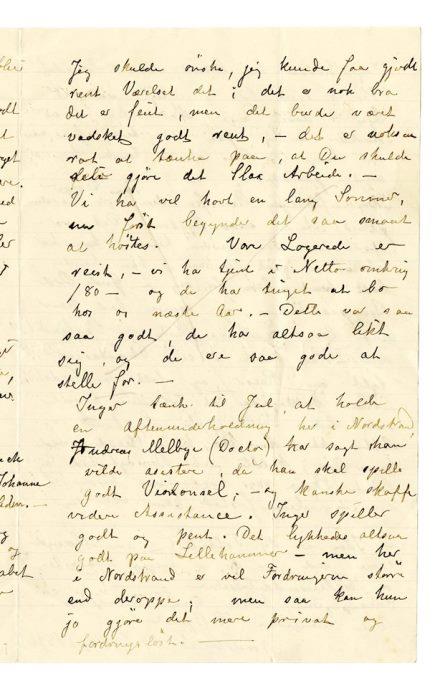 Jeg skulde ønske, jeg kunde faa gjordt
rent Værelset dit; det er nok bra
det er feiet, men det burde været
vadsket godt rent, – det er noksaa
rart at tænke paa, at Du skulde
gjöre det Slax Arbeide. –
Vi ha vel havt en lang Sommer,
nu först begynder det saa smaat
at höstes. Vore Logerede er
reist, – vi ha tjent i Netto omkring
180 – og de har tinget at bo
hos os næste Aar. – Dette var saa
saa godt, de ha altsaa likt
sig, og de ere saa gode at
stelle for. –
Inger tænk. til Jul, at holde
en Aftenunderholdning her i Nordstrand,
Andreas Melbye (Doctor) har sagt han
vilde asistere, da han skal spille
godt Violonsel, – og kanske skaffe
videre Assistance. Inger spiller
godt og pent. Det lykkedes altsaa
godt paa Lillehammer – men her
i Nordstrand er vel Fordringerne större
end deroppe; men saa kan hun
jo gjöre det mere privat og
fordringslöst. –
Johanne